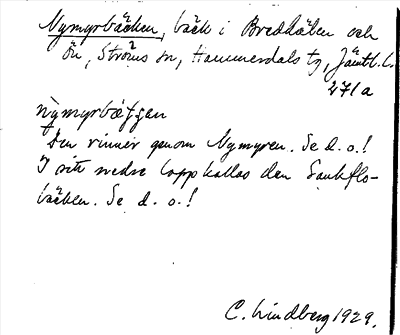 Nymyrbäcken, bäck i Breddåkern och
Ön, Ströms sn, Hammerdals tg, Jämtl. l.
271a
nỳmyrbæʃʃen
Den rinner genom Nymyren. Se d. o.!
I sitt nedre lopp kallas den Sankflo-
bäcken. Se d. o.!
C. Lindberg 1929.